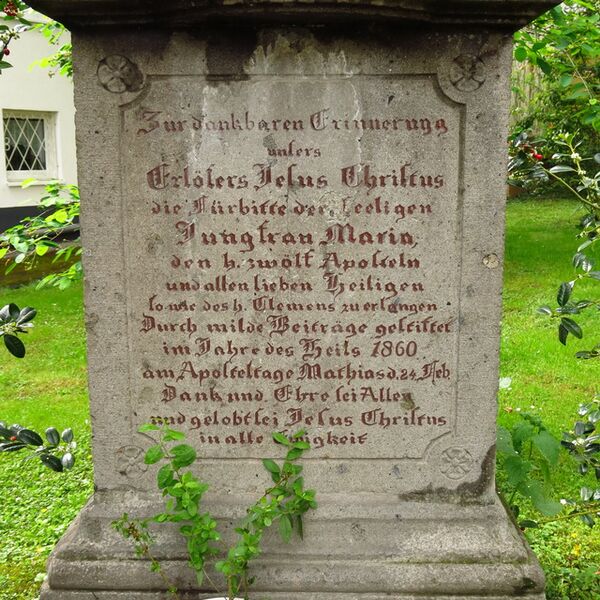 Zur dankbaren Erinnerung
unsers
Erlösers Jesus Christus
die Fürbitte der seeligen
Jungfrau Maria,
den h. zwölf Aposteln
und allen lieben Heiligen
so wie des h. Clemens zu erlangen
Durch milde Beiträge gestiftet
im Jahre des Heils 1860
am Aposteltage Mathias d. 24. Feb.
Dank und Ehre sei Allen
und gelobt sei Jesus Christus
in alle Ewigkeit